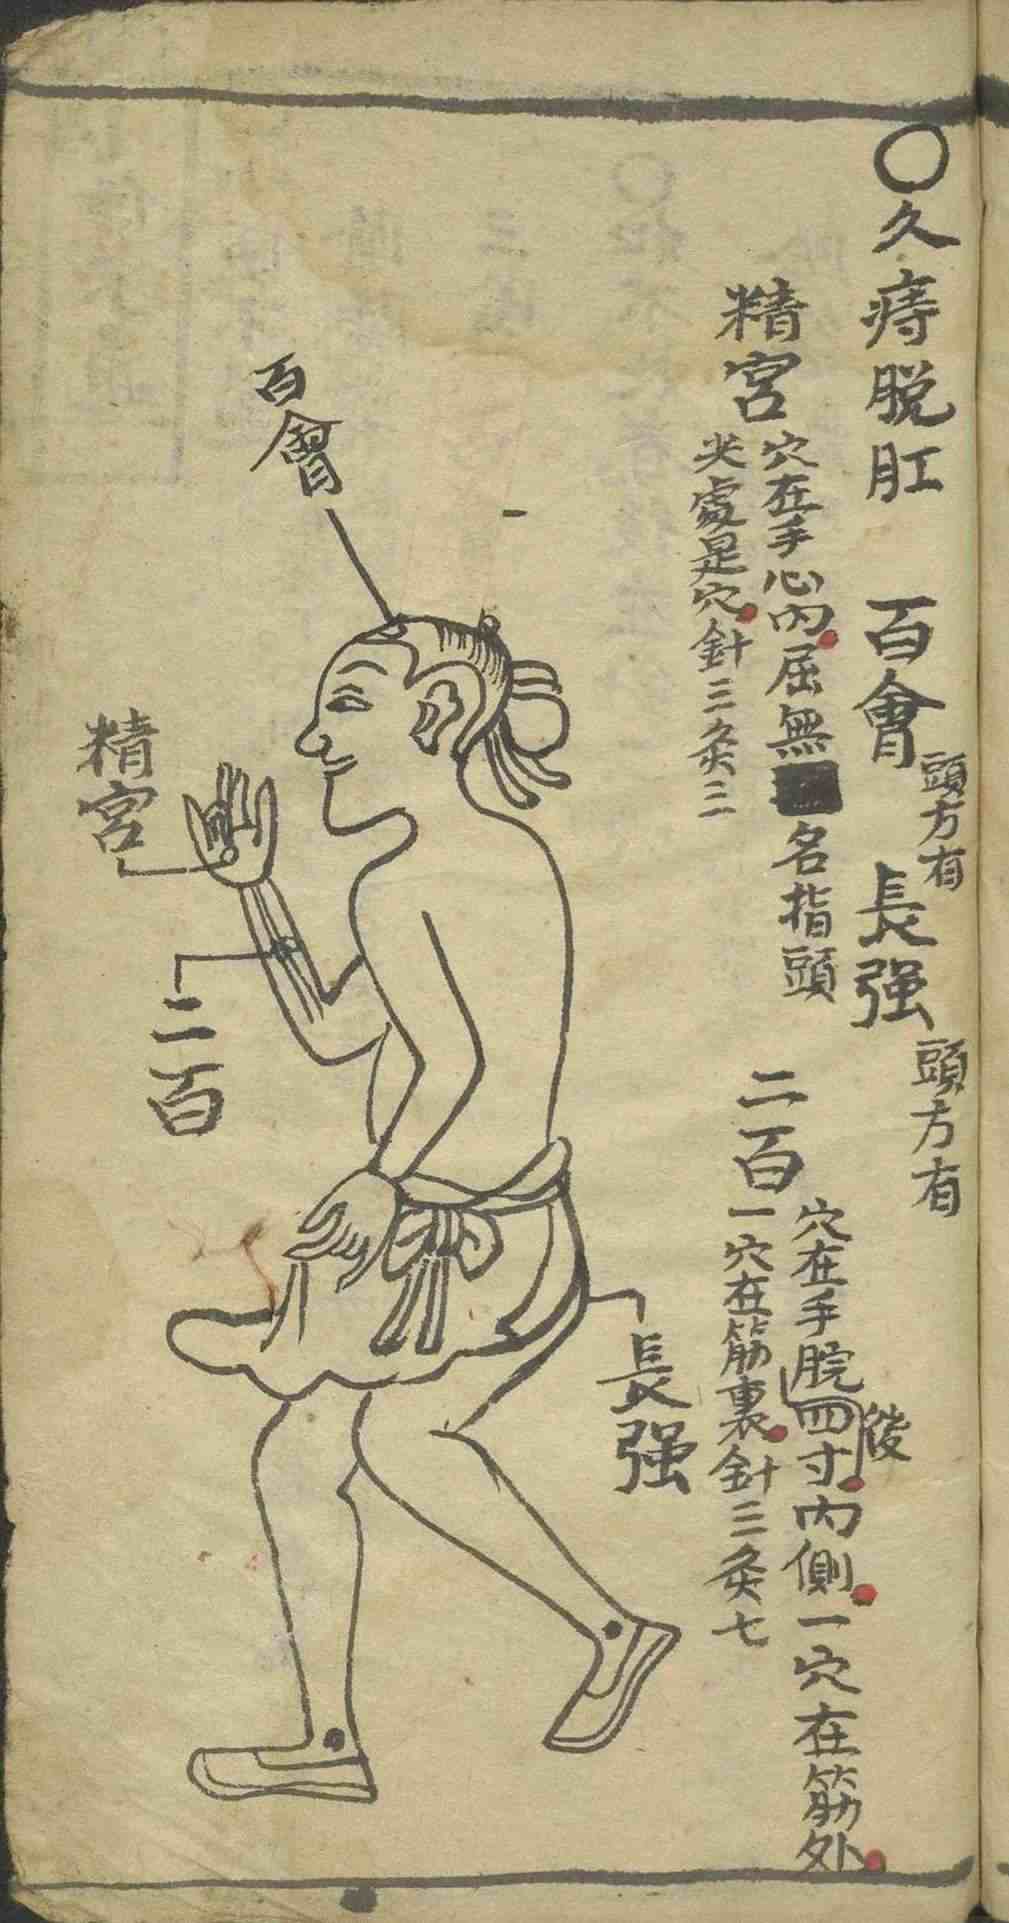 〇久痔脱肛
百會
頭方有
長强
頭方有
精宮
穴在手心內屈無名指頭
尖處是穴針三灸三
二百
穴在手脘後四寸內側一穴在筋外
一穴在筋裏針三灸七
百會
精宮
二百
長强